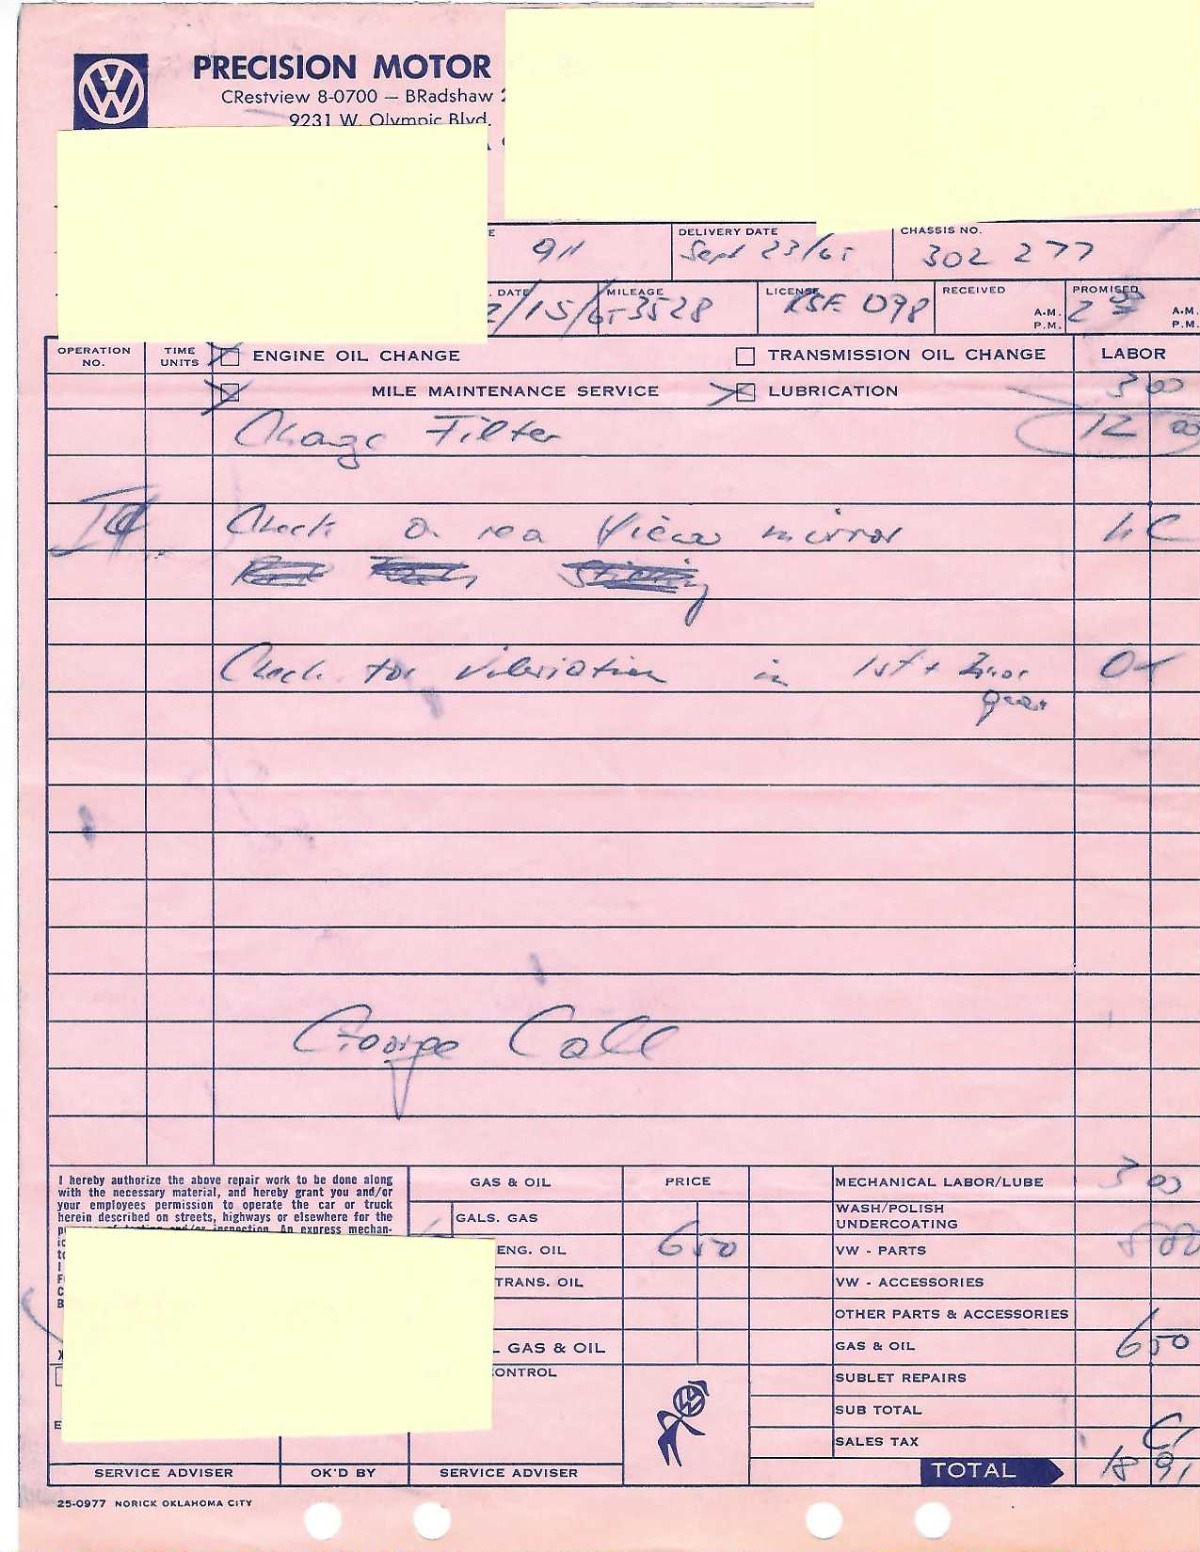 PRECISION MOTOR
CRestview 8-0700 — BRadshaw
9231 W. Olympic Blvd.
911
DELIVERY DATE
Sept 23/65
CHASSIS NO.
302 277
DATE
2/15/65
MILEAGE
3528
LICENSE
RSE 098
RECEIVED
A.M.
P.M.
PROMISED
2
A.M.
P.M.
OPERATION NO.
TIME UNITS
ENGINE OIL CHANGE
TRANSMISSION OIL CHANGE
LABOR
MILE MAINTENANCE SERVICE
LUBRICATION
3 00
Change Filter
12 00
Check on rea View mirror
NC
Check for vibriation in 1st +
gear
George Call
I hereby authorize the above repair work to be done along
with the necessary material, and hereby grant you and/or
your employees permission to operate the car or truck
herein described on streets, highways or elsewhere for the
An express mechan-
GAS & OIL
PRICE
GALS. GAS
ENG. OIL
6 50
TRANS. OIL
GAS & OIL
MECHANICAL LABOR/LUBE
3 00
WASH/POLISH
UNDERCOATING
VW - PARTS
VW - ACCESSORIES
OTHER PARTS & ACCESSORIES
GAS & OIL
6 50
SUBLET REPAIRS
SUB TOTAL
SALES TAX
TOTAL
18 91
SERVICE ADVISER
OK'D BY
SERVICE ADVISER
25-0977 NORICK OKLAHOMA CITY